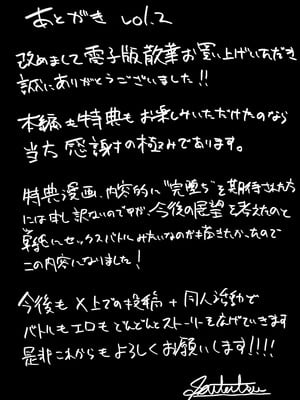 あとがき vol.2
改めまして電子版散華お買い上げいただき
誠にありがとうございました!!
本編も特典もお楽しみいただけたのなら
当方感謝の極みであります。
特典漫画、内容的に"完堕ち"を期待された方
には申し訳ないのですが、今後の展望を考えたのと
単純にセックスバトルみたいなのが描きたかったので
この内容になりました!
今後も X上での投稿 + 同人活動で
バトルもエロもどんどんとストーリーも広げていきます
是非これからもよろしくお願いします!!!!